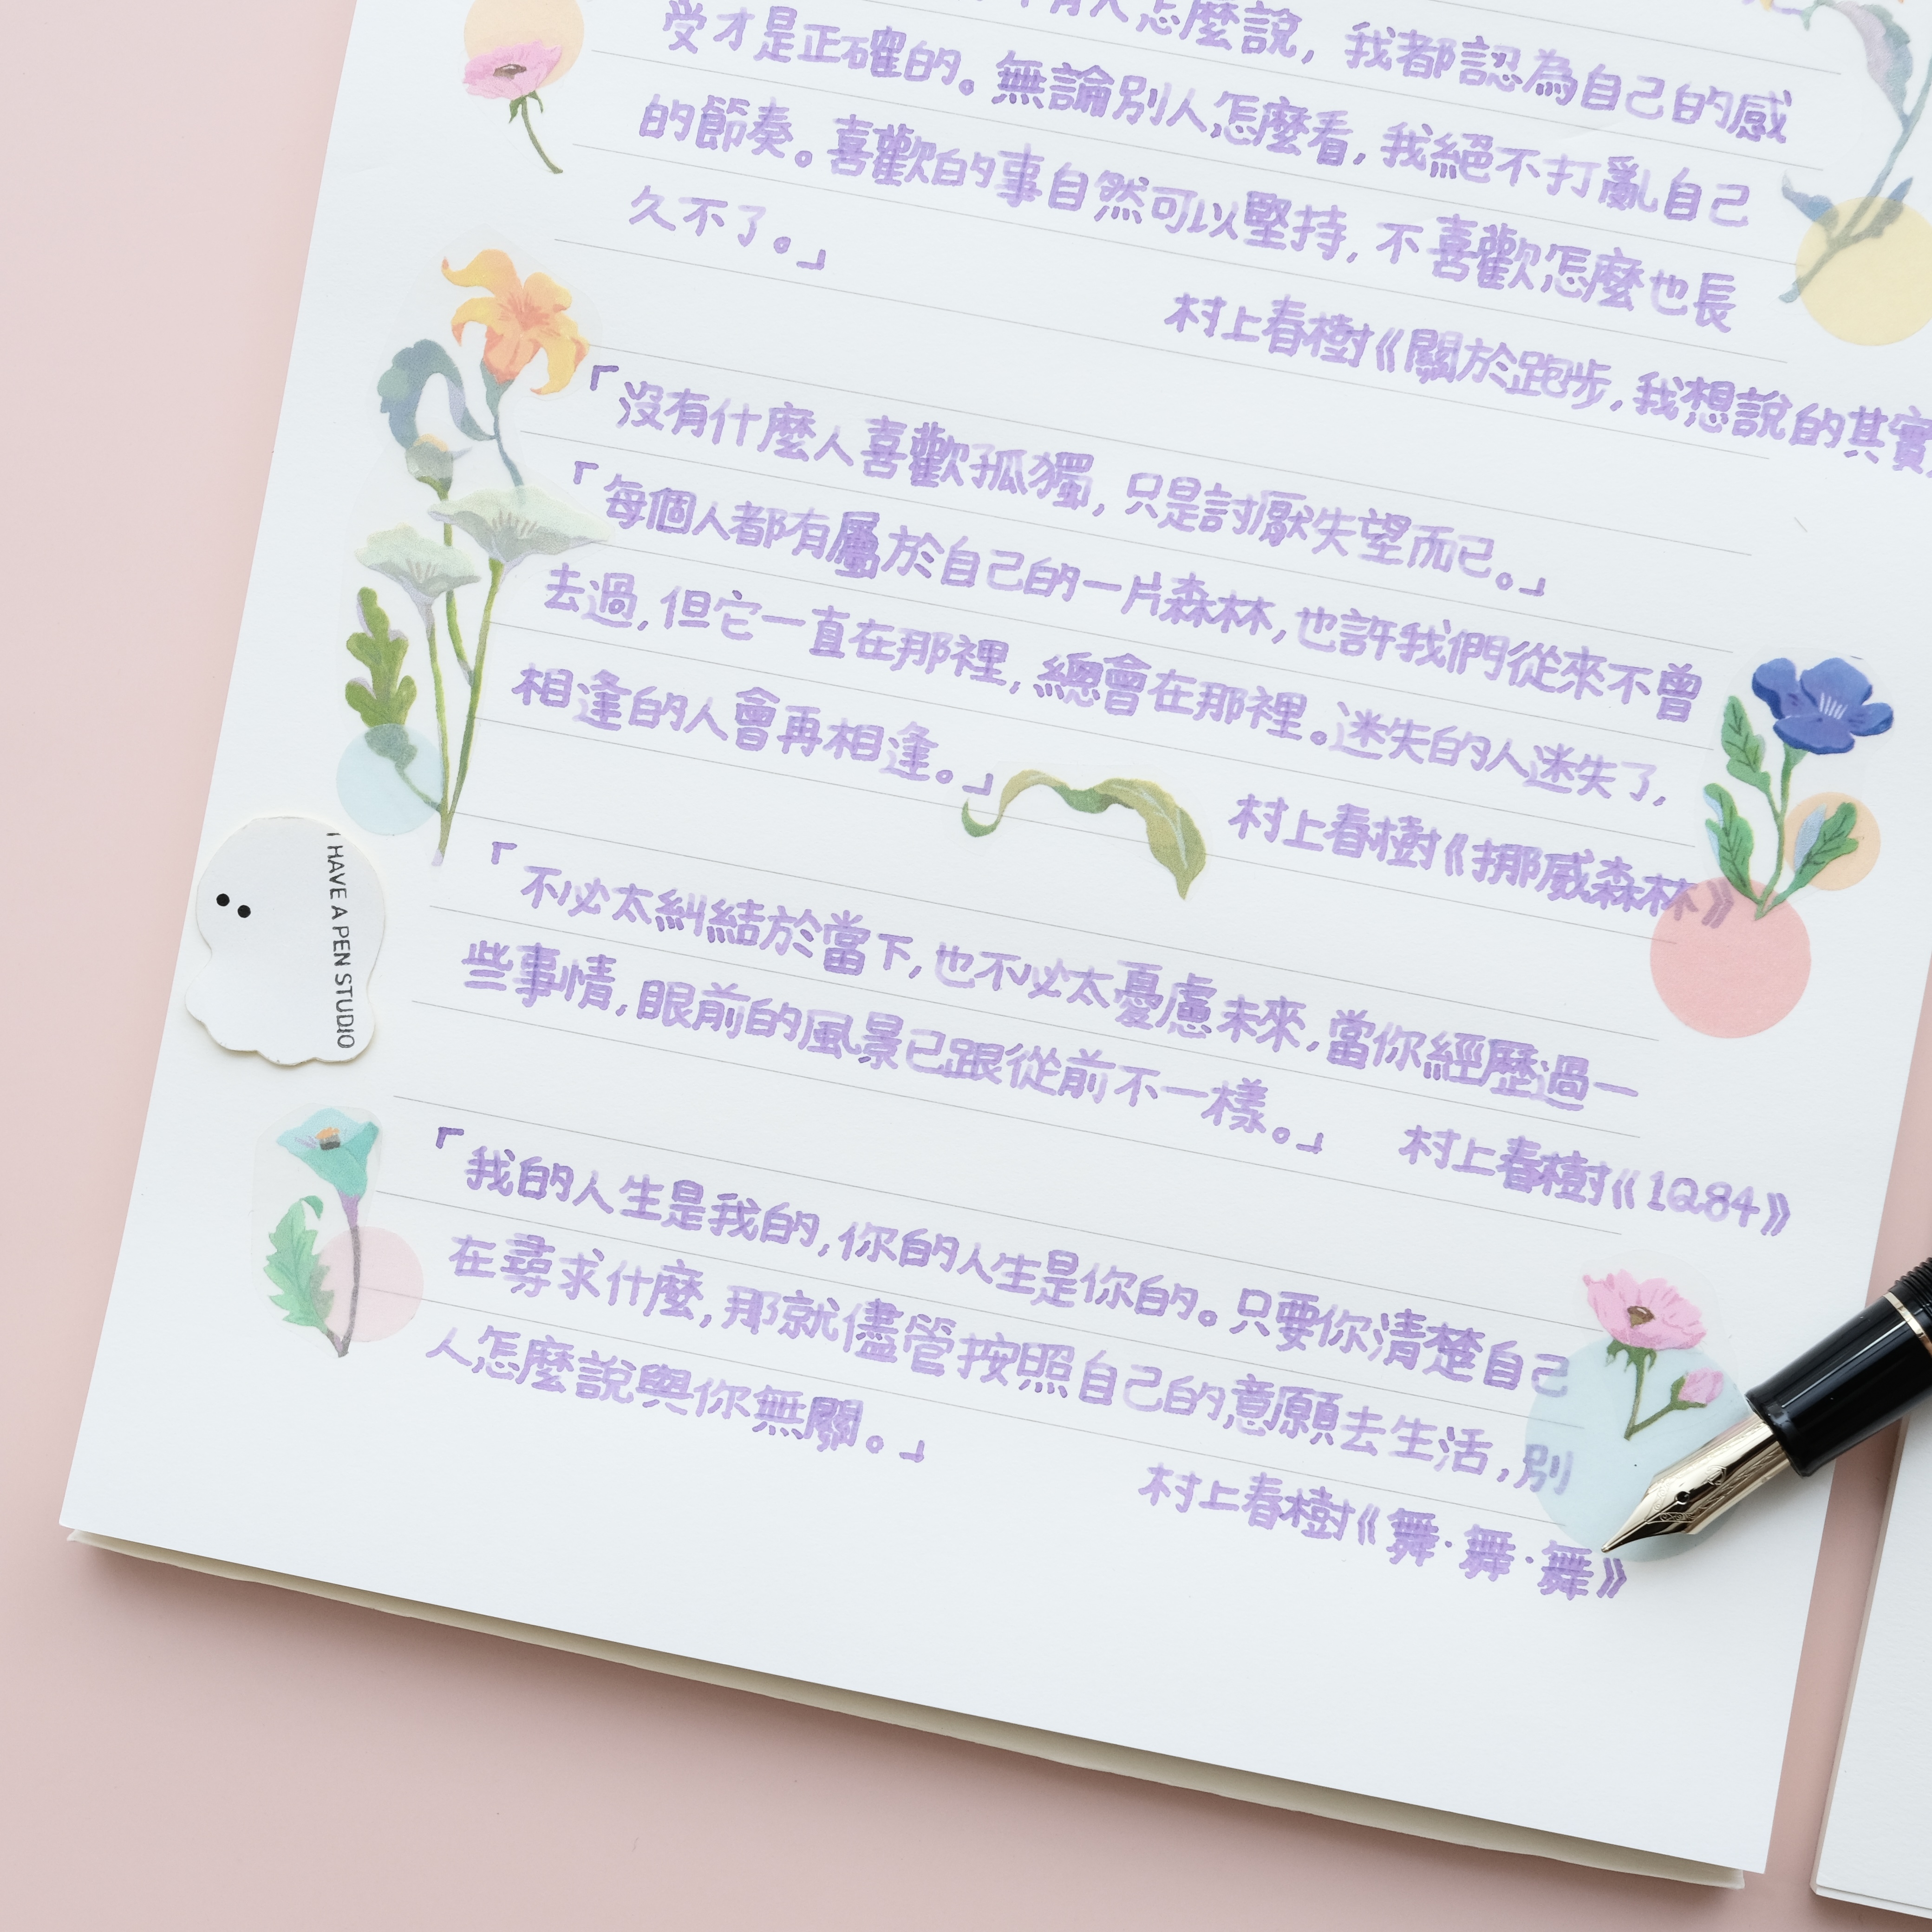 人怎麼說，我都認為自己的感
受才是正確的。無論別人怎麼看，我絕不打亂自己
的節奏。喜歡的事自然可以堅持，不喜歡怎麼也長
久不了。」
村上春樹《關於跑步，我想說的其實
「沒有什麼人喜歡孤獨，只是討厭失望而已。」
「每個人都有屬於自己的一片森林，也許我們從來不曾
去過，但它一直在那裡，總會在那裡。迷失的人迷失了，
相逢的人會再相逢。」
村上春樹《挪威森林》
「不必太糾結於當下，也不必太憂慮未來，當你經歷過一
些事情，眼前的風景已跟從前不一樣。」
村上春樹《1Q84》
「我的人生是我的，你的人生是你的。只要你清楚自己
在尋求什麼，那就儘管按照自己的意願去生活，別
人怎麼說與你無關。」
村上春樹《舞·舞·舞》
I HAVE A PEN STUDIO